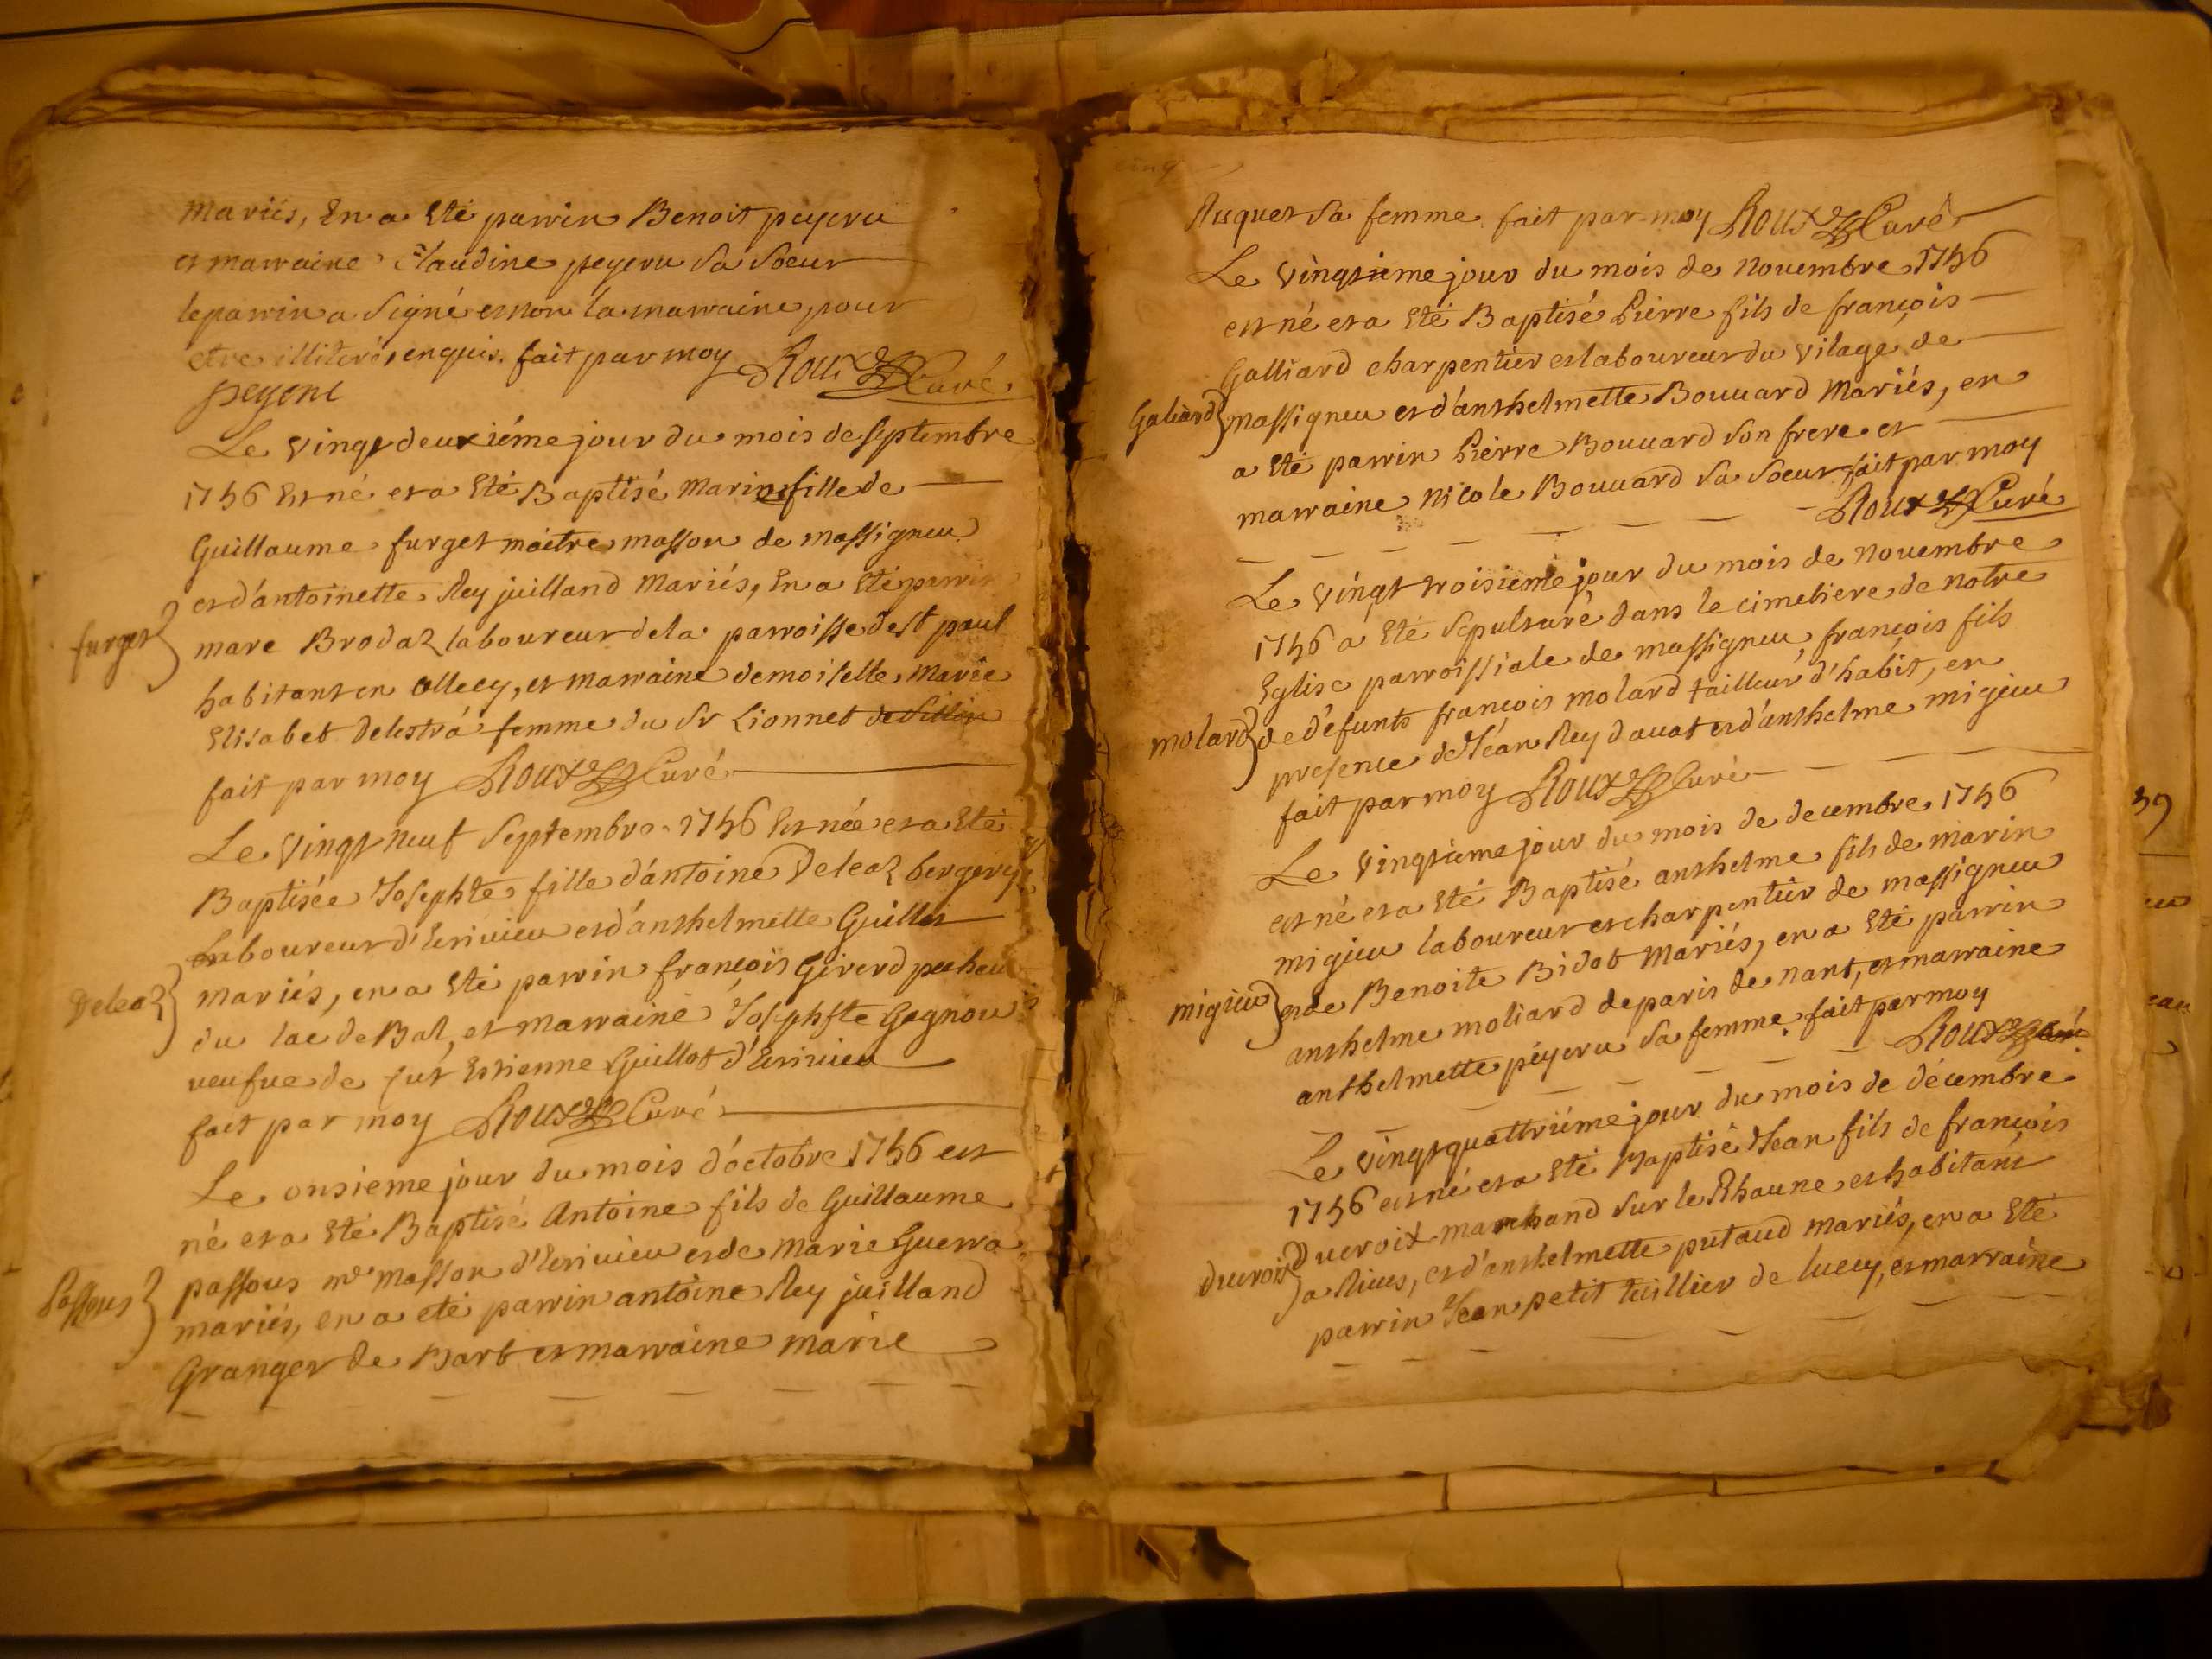 Mariés, En a Eté parrin Benoit peyeru
et marraine Claudine peyeru Sa Soeur
le parrin a Signé et non la marraine, pour
etre illiteré, enquis. fait par moy Roux Curé
peyeru
Le vingt deuxiéme jour du mois de Septembre
1756 Est né et a Eté Baptisé Marin fille de
Guillaume furget maitre masson de massigneu
et d'antoinette Rey juilland Mariés, En a Eté parrin
furget
marc Brodaz laboureur de la parroisse de st paul
habitant en ollecy, et marraine demoiselle Marie
Elisabet Delestra femme du Sr Lionnet
fait par moy Roux Curé
Le vingt neuf Septembre 1756 Est née et a Eté
Baptisée Josephte fille d'antoine Deleaz berger
Laboureur d'Erinieu et d'anthelmette Guillot
Deleaz
mariés, en a Eté parrin françois Girerd
du lac de Bar, et marraine Josephte Gagnou
veufve de fut Estienne Guillot d'Erinieu
fait par moy Roux Curé
Le onsieme jour du mois d'octobre 1756 est
né et a Eté Baptisé Antoine fils de Guillaume
passous
passous me masson d'Erinieu et de Marie Guerra
mariés, en a eté parrin antoine Rey juilland
Granger de Barb et marraine marie
Ruquet Sa femme fait par moy Roux Curé
Le vingtieme jour du mois de Novembre 1756
est né et a Eté Baptisé Pierre fils de françois
Galliard charpentier et laboureur du vilage de
Galiard
massigneu et d'anthelmette Bouuard Mariés, en
a Eté parrin Pierre Bouuard Son frere et
marraine Nicole Bouuard Sa Soeur fait par moy
Roux Curé
Le vingt troisieme jour du mois de Nouembre
1756 a Eté Sepulturé dans le cimetiere de notre
Eglise parroissiale de massigneu, françois fils
molard
de défunts françois molard tailleur d'habit, en
presence de Jean Rey dauat et d'anthelme migieu
fait par moy Roux Curé
Le vingtieme jour du mois de decembre 1756
est né et a Eté Baptisé anthelme fils de marin
migieu laboureur et charpentier de massigneu
migieu
et de Benoite Bidot Mariés, en a Eté parrin
anthelme moliard de paris de nant, et marraine
anthelmette peyeru Sa femme. fait par moy
Roux Curé
Le vingt quattriéme jour du mois de décembre
1756 est né et a Eté Baptisé Jean fils de françois
Ducroix marchand Sur le Rhaune et habitant
ducroix
a Rives, et d'anthelmette putaud mariés, en a Eté
parrin Jean petit tuillier de lucey, et marraine
39